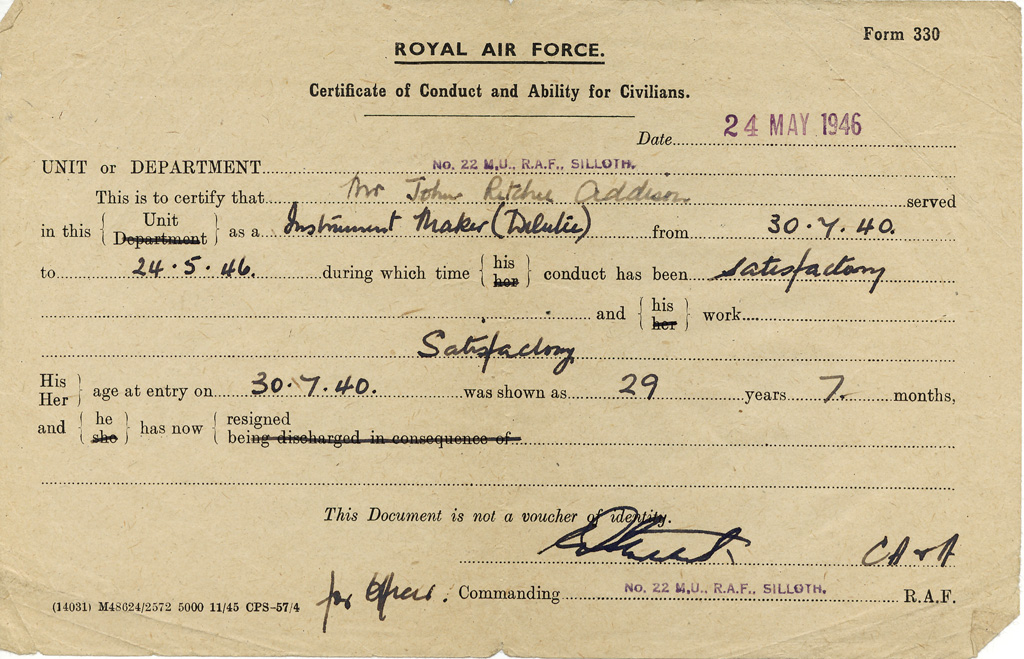 Form 330
ROYAL AIR FORCE.
Certificate of Conduct and Ability for Civilians.
Date 24 MAY 1946
UNIT or DEPARTMENT No. 22 M.U., R.A.F., SILLOTH.
This is to certify that Mr John Ritchie Addison served
in this { Unit Department } as a Instrument Maker (Dilutee) from 30.7.40.
to 24.5.46. during which time { his her } conduct has been satisfactory
and { his her } work
Satisfactory
His Her } age at entry on 30.7.40. was shown as 29 years 7. months,
and { he she } has now { resigned being discharged in consequence of
This Document is not a voucher of identity.
CA & A
for Officer. Commanding No. 22 M.U., R.A.F., SILLOTH. R.A.F.
(14031) M48624/2572 5000 11/45 CPS-57/4